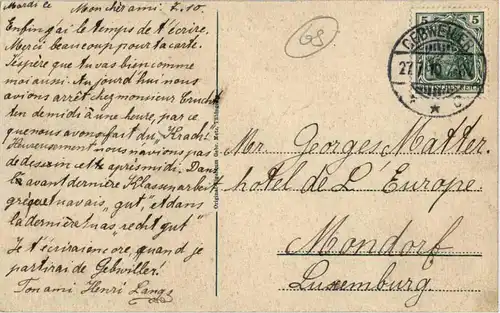 Mardi le Mon cher ami 7.10.
Enfin j'ai le temps de t'écrire.
Merci beaucoup pour ta carte.
J'espère que tu vas bien comme
moi aussi. Aujourd'hui nous
avions arrêt chez monsieur
ten de midi à une heure, par ce
que nous avons fait du "Krach"
Heureusement nous n'avions pas
de dessin cette après midi. Dans
la avant dernière Klassenarbeit
grecque tu avais "gut", et dans
la dernière tu as "recht gut"
Je t'écrirai encore, quand je
partirai de Gebwiller.
Ton ami Henri Lang
GS
5 5
GEBWEILER
27.7.10
c
Mr. Georges Matter.
hôtel de L'Europe
Mondorf
Luxemburg